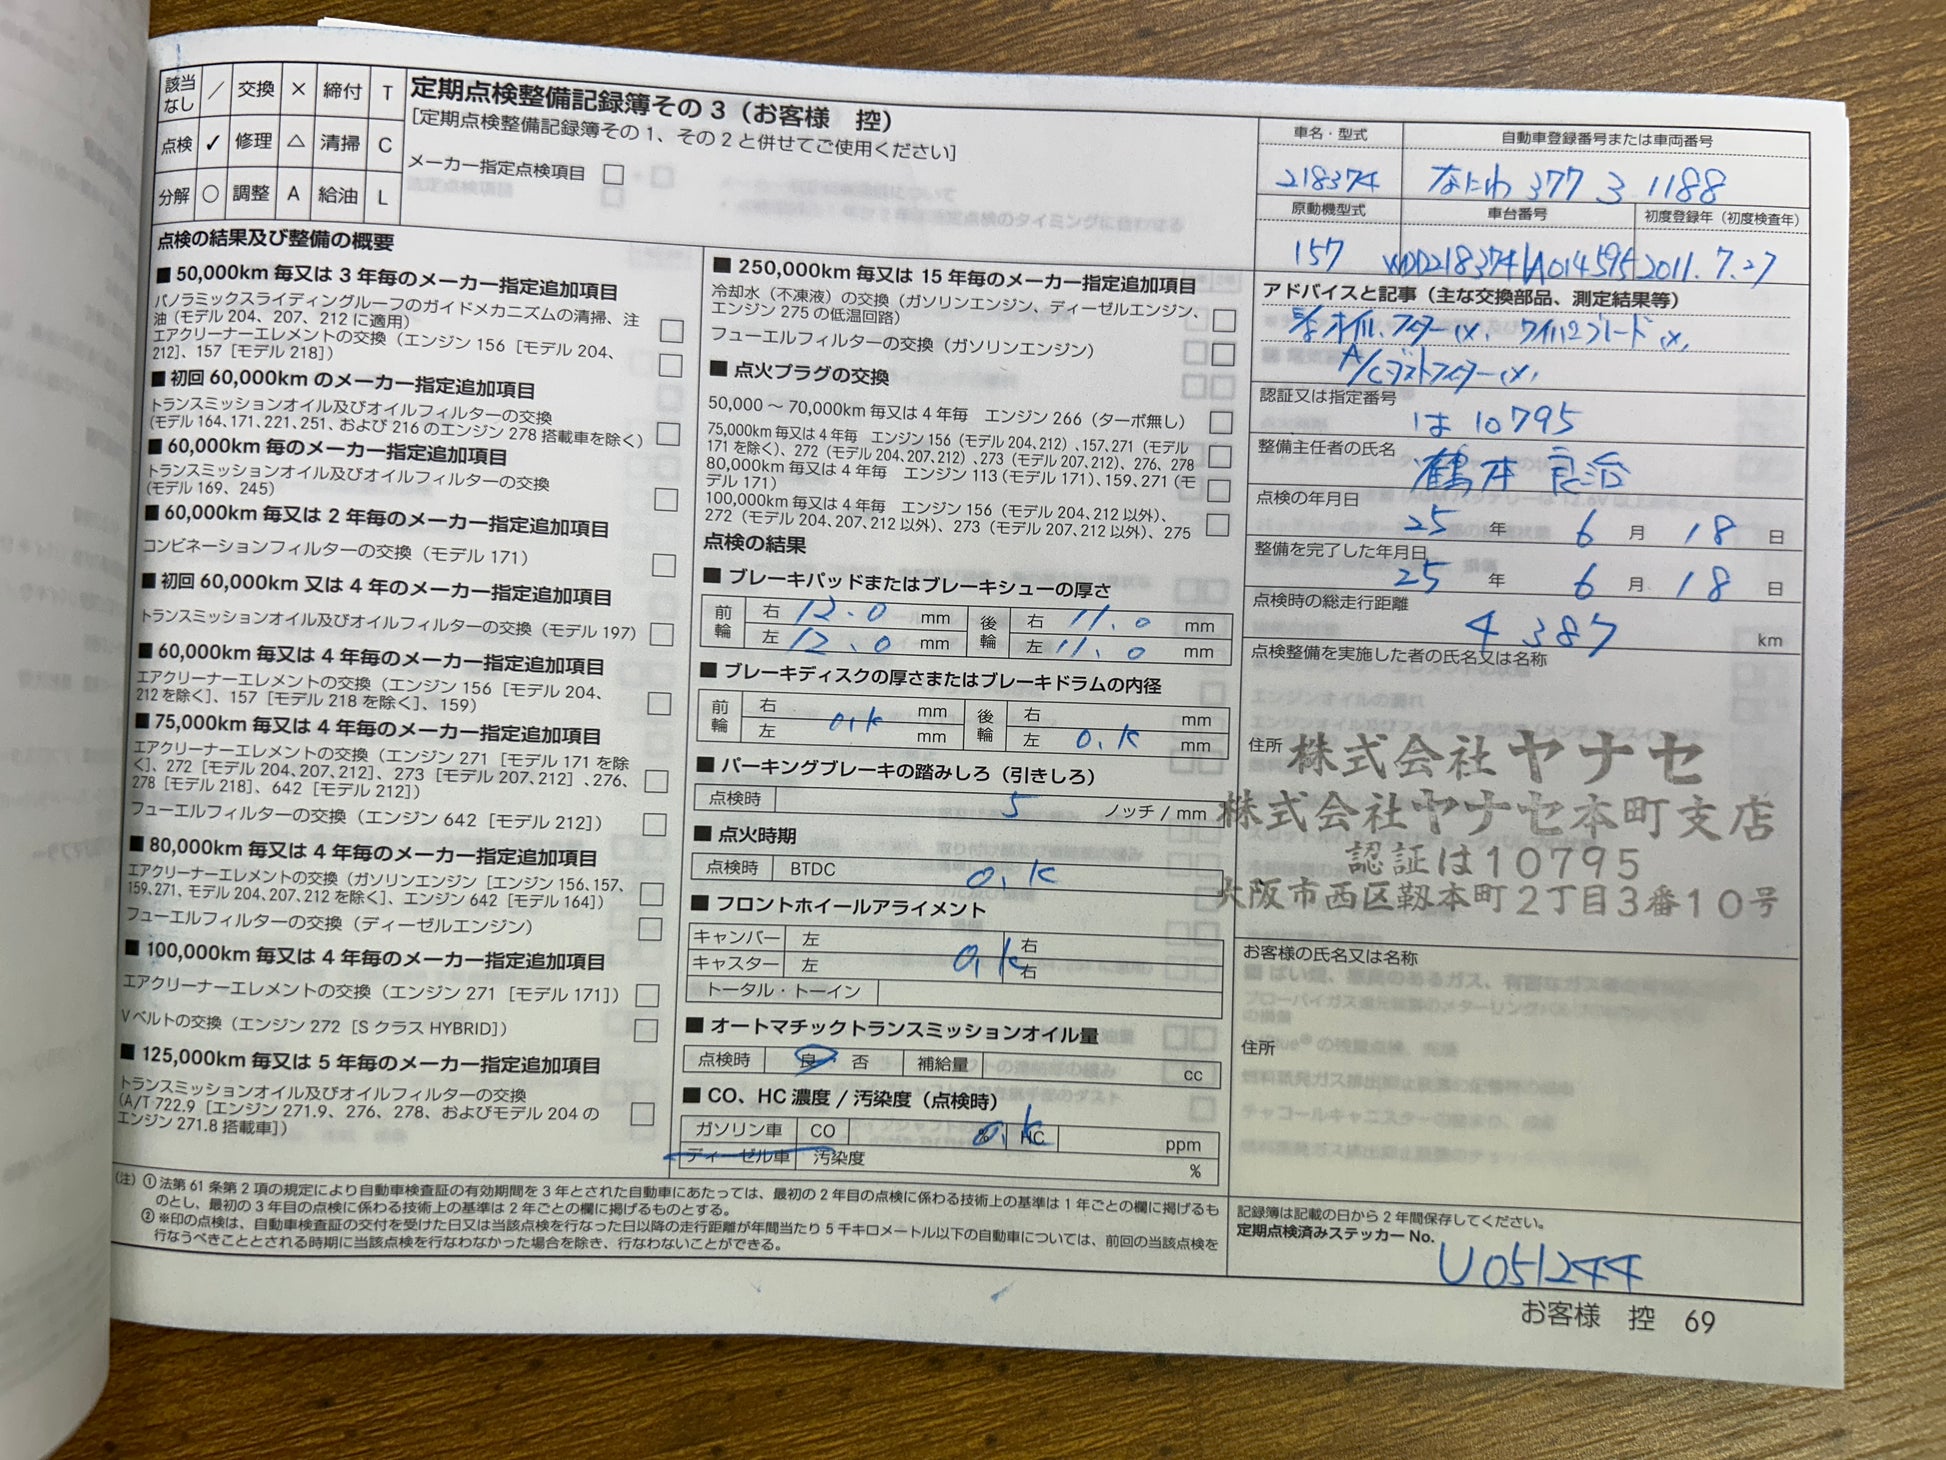 該当なし ／ 交換 × 締付 T
点検 ✓ 修理 △ 清掃 C
分解 ○ 調整 A 給油 L
定期点検整備記録簿その3（お客様 控）
［定期点検整備記録簿その1、その2と併せてご使用ください］
メーカー指定点検項目 □
点検の結果及び整備の概要
■ 50,000km 毎又は3年毎のメーカー指定追加項目
パノラミックスライディングルーフのガイドメカニズムの清掃、注
油（モデル 204、207、212 に適用） □
エアクリーナーエレメントの交換（エンジン 156［モデル 204、
212］、157［モデル 218］） □
■ 初回 60,000km のメーカー指定追加項目
トランスミッションオイル及びオイルフィルターの交換
（モデル 164、171、221、251、および 216 のエンジン 278 搭載車を除く） □
■ 60,000km 毎のメーカー指定追加項目
トランスミッションオイル及びオイルフィルターの交換
（モデル 169、245） □
■ 60,000km 毎又は2年毎のメーカー指定追加項目
コンビネーションフィルターの交換（モデル 171） □
■ 初回 60,000km 又は4年毎のメーカー指定追加項目
トランスミッションオイル及びオイルフィルターの交換（モデル 197） □
■ 60,000km 毎又は4年毎のメーカー指定追加項目
エアクリーナーエレメントの交換（エンジン 156［モデル 204、
212 を除く］、157［モデル 218 を除く］、159） □
■ 75,000km 毎又は4年毎のメーカー指定追加項目
エアクリーナーエレメントの交換（エンジン 271［モデル 171 を除
く］、272［モデル 204、207、212］、273［モデル 207、212］、276、
278［モデル 218］、642［モデル 212］） □
フューエルフィルターの交換（エンジン 642［モデル 212］） □
■ 80,000km 毎又は4年毎のメーカー指定追加項目
エアクリーナーエレメントの交換（ガソリンエンジン［エンジン 156、157、
159、271、モデル 204、207、212 を除く］、エンジン 642［モデル 164］） □
フューエルフィルターの交換（ディーゼルエンジン） □
■ 100,000km 毎又は4年毎のメーカー指定追加項目
エアクリーナーエレメントの交換（エンジン 271［モデル 171］） □
Vベルトの交換（エンジン 272［SクラスHYBRID］） □
■ 125,000km 毎又は5年毎のメーカー指定追加項目
トランスミッションオイル及びオイルフィルターの交換
（A/T 722.9［エンジン 271.9、276、278、およびモデル 204 の
エンジン 271.8 搭載車］） □
■ 250,000km 毎又は 15 年毎のメーカー指定追加項目
冷却水（不凍液）の交換（ガソリンエンジン、ディーゼルエンジン、
エンジン 275 の低温回路） □
フューエルフィルターの交換（ガソリンエンジン） □
■ 点火プラグの交換
50,000～70,000km 毎又は4年毎 エンジン 266（ターボ無し） □
75,000km 毎又は4年毎 エンジン 156（モデル 204、212）、157、271（モデル
171 を除く）、272（モデル 204、207、212）、273（モデル 207、212）、276、278 □
80,000km 毎又は4年毎 エンジン 113（モデル 171）、159、271（モ
デル 171） □
100,000km 毎又は4年毎 エンジン 156（モデル 204、212 以外）、
272（モデル 204、207、212 以外）、273（モデル 207、212 以外）、275 □
点検の結果
■ ブレーキパッドまたはブレーキシューの厚さ
前輪 右 12.0 mm 後輪 右 11.0 mm
左 12.0 mm 左 11.0 mm
■ ブレーキディスクの厚さまたはブレーキドラムの内径
前輪 右 mm 後輪 右 mm
左 o.k mm 左 o.k mm
■ パーキングブレーキの踏みしろ（引きしろ）
点検時 5 ノッチ / mm
■ 点火時期
点検時 BTDC o.k
■ フロントホイールアライメント
キャンバー 左 右
キャスター 左 o.k 右
トータル・トーイン
■ オートマチックトランスミッションオイル量
点検時 良・否 補給量 cc
■ CO、HC 濃度 / 汚染度（点検時）
ガソリン車 CO % o.k HC ppm
ディーゼル車 汚染度 %
車名・型式 自動車登録番号または車両番号
218374 なにわ 377 ろ 1188
原動機型式 車台番号 初度登録年（初度検査年）
157 WDD2183741A014595 2011.7.27
アドバイスと記事（主な交換部品、測定結果等）
オイル、フィルター(×)、ワイパーブレード(×)、
A/Cダストフィルター(×)、
認証又は指定番号
は 10795
整備主任者の氏名
鶴本 良治
点検の年月日
25 年 6 月 18 日
整備を完了した年月日
25 年 6 月 18 日
点検時の総走行距離
4387 km
点検整備を実施した者の氏名又は名称
住所
株式会社ヤナセ
株式会社ヤナセ本町支店
認証は10795
大阪市西区靱本町2丁目3番10号
お客様の氏名又は名称
住所
記録簿は記載の日から2年間保存してください。
定期点検済みステッカー No.
U051244
（注）① 法第 61 条第 2 項の規定により自動車検査証の有効期間を 3 年とされた自動車にあたっては、最初の 2 年目の点検に係わる技術上の基準は 1 年ごとの欄に掲げるも
のとし、最初の 3 年目の点検に係わる技術上の基準は 2 年ごとの欄に掲げるものとする。
② ※印の点検は、自動車検査証の交付を受けた日又は当該点検を行なった日以降の走行距離が年間当たり 5 千キロメートル以下の自動車については、前回の当該点検を
行なうべきこととされる時期に当該点検を行なわなかった場合を除き、行なわないことができる。
お客様 控 69